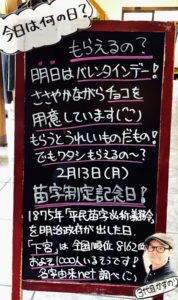 今日は何の日？
もらえるの？
明日はバレンタインデー！
ささやかながらチョコを
用意しています(^^)
もらうとうれしいものだもの！
でもワタシもらえるの〜？
2月13日(月)
苗字制定記念日！
1875年「平民苗字必称義務令」
を明治政府が出した日。
「下宮」は全国順位8162位
およそ1000人いるそうだ！
名字由来net調べ(^^)
3代目かずの